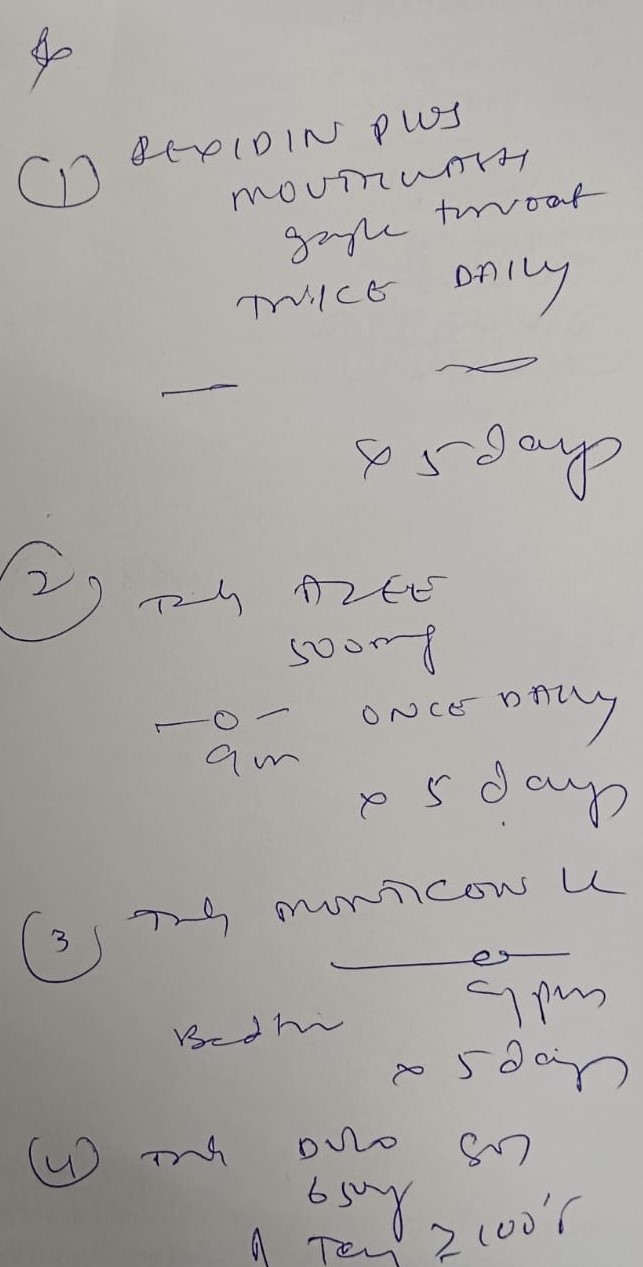 (1) REXIDIN PLUS
MOUTHWASH
gargle throat
TWICE DAILY
x 5 days
(2) Tab AZEE
500mg
—0— ONCE DAILY
x 5 days
(3) Tab MONTICOPE
Bedtime
x 5 days
(4) Tab DOLO
650mg
≥ 100°F